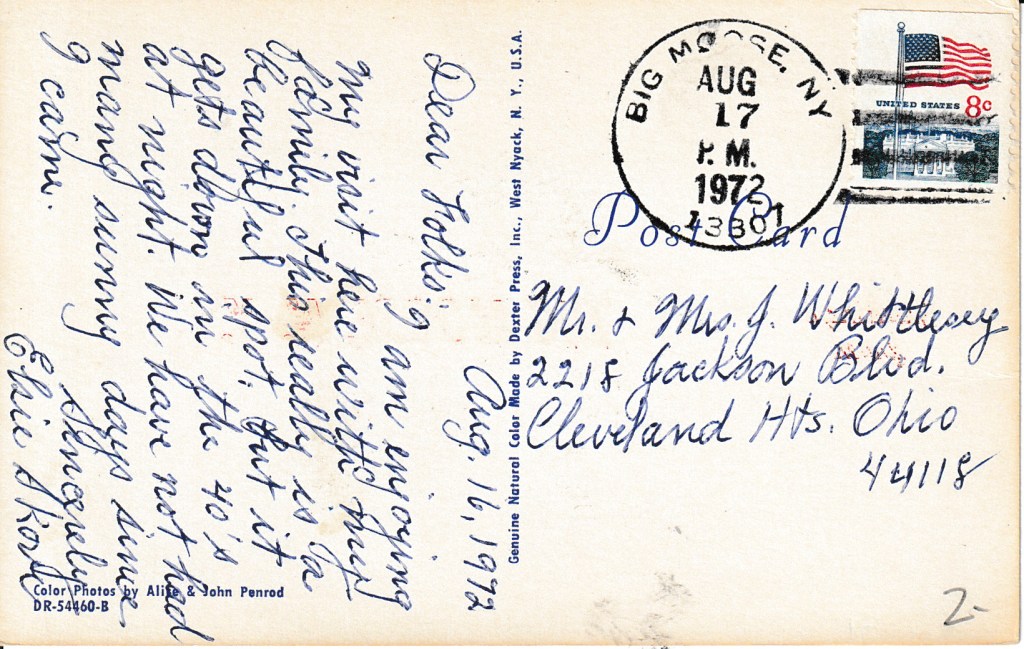 Aug. 16, 1972
Dear Folks:
I am enjoying
my visit here with my
family. This really is a
beautiful spot. But it
gets down in the 40's
at night. We have not had
many sunny days since
I came.
Sincerely
Elsie
Color Photos by Alice & John Penrod
DR-54460-B
Genuine Natural Color Made by Dexter Press, Inc., West Nyack, N. Y., U.S.A.
BIG MOOSE, NY
AUG
17
P.M.
1972
13301
UNITED STATES 8c
Post Card
Mr. & Mrs. J. Whittlesey
2218 Jackson Blvd.
Cleveland Hts. Ohio
44118
2-